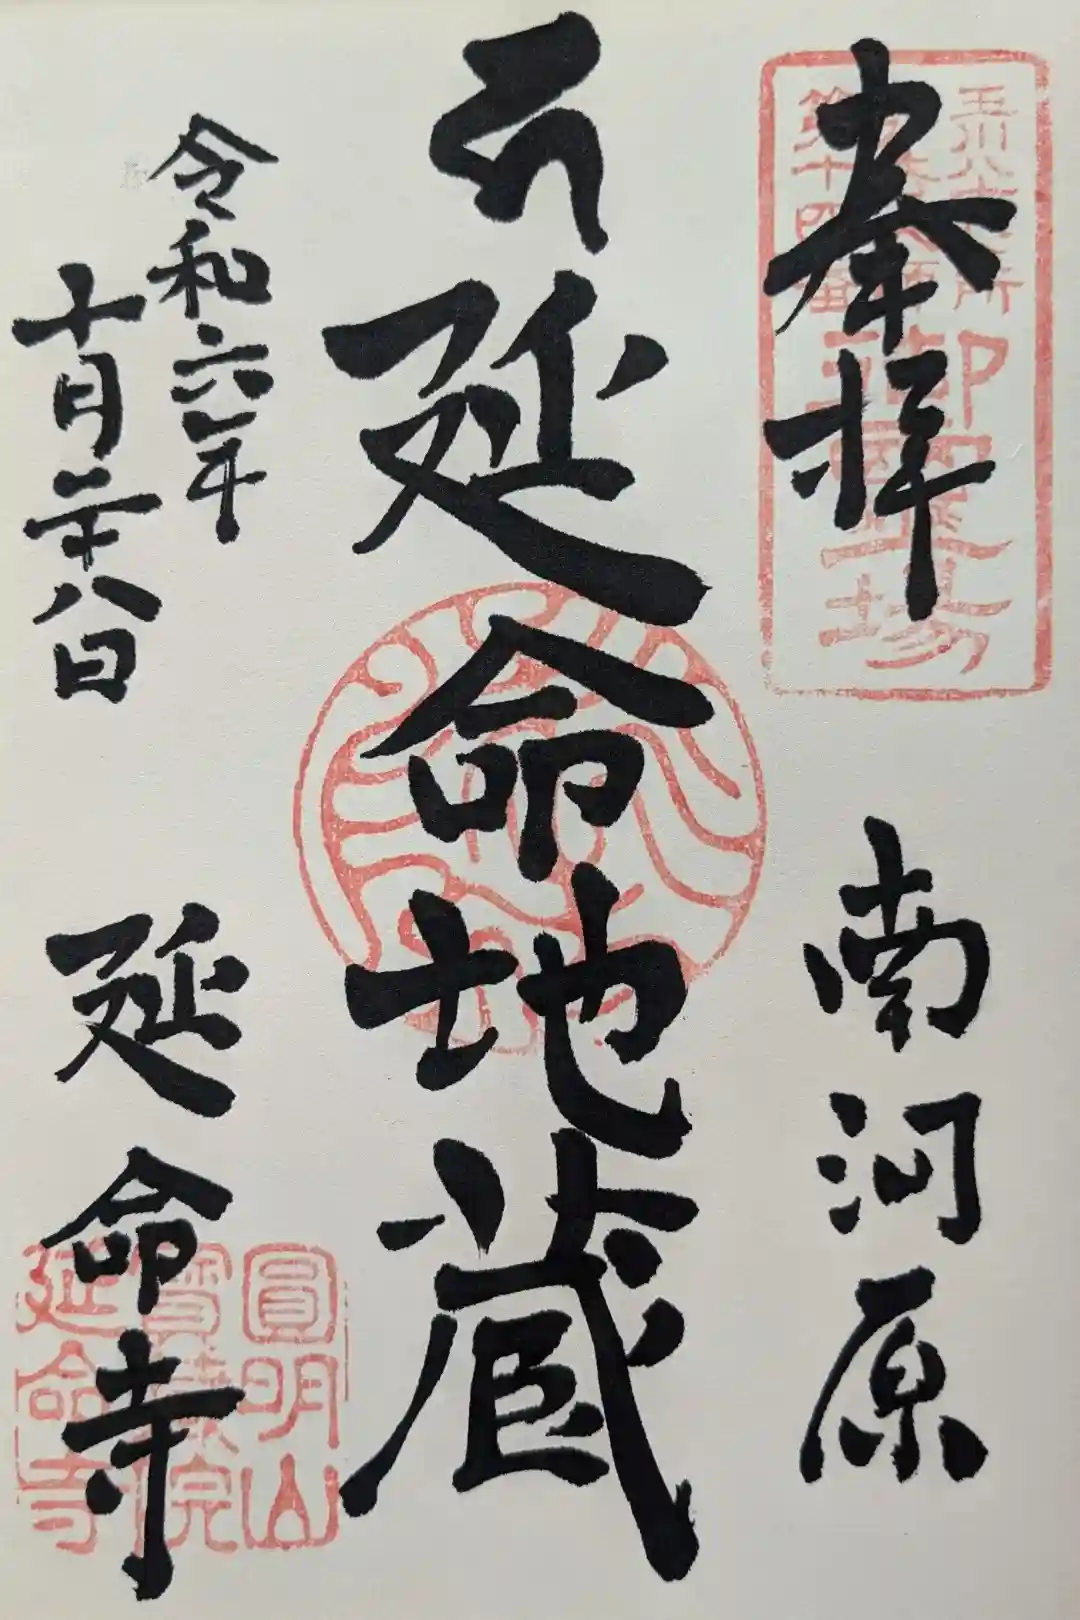 奉拝
御靈場
南河原
延命地蔵
令和六年
十月二十八日
延命寺
圓明山
院
延命寺